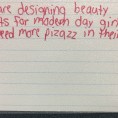 are designing beauty
ts for modern day gir
eed more pizazz in their